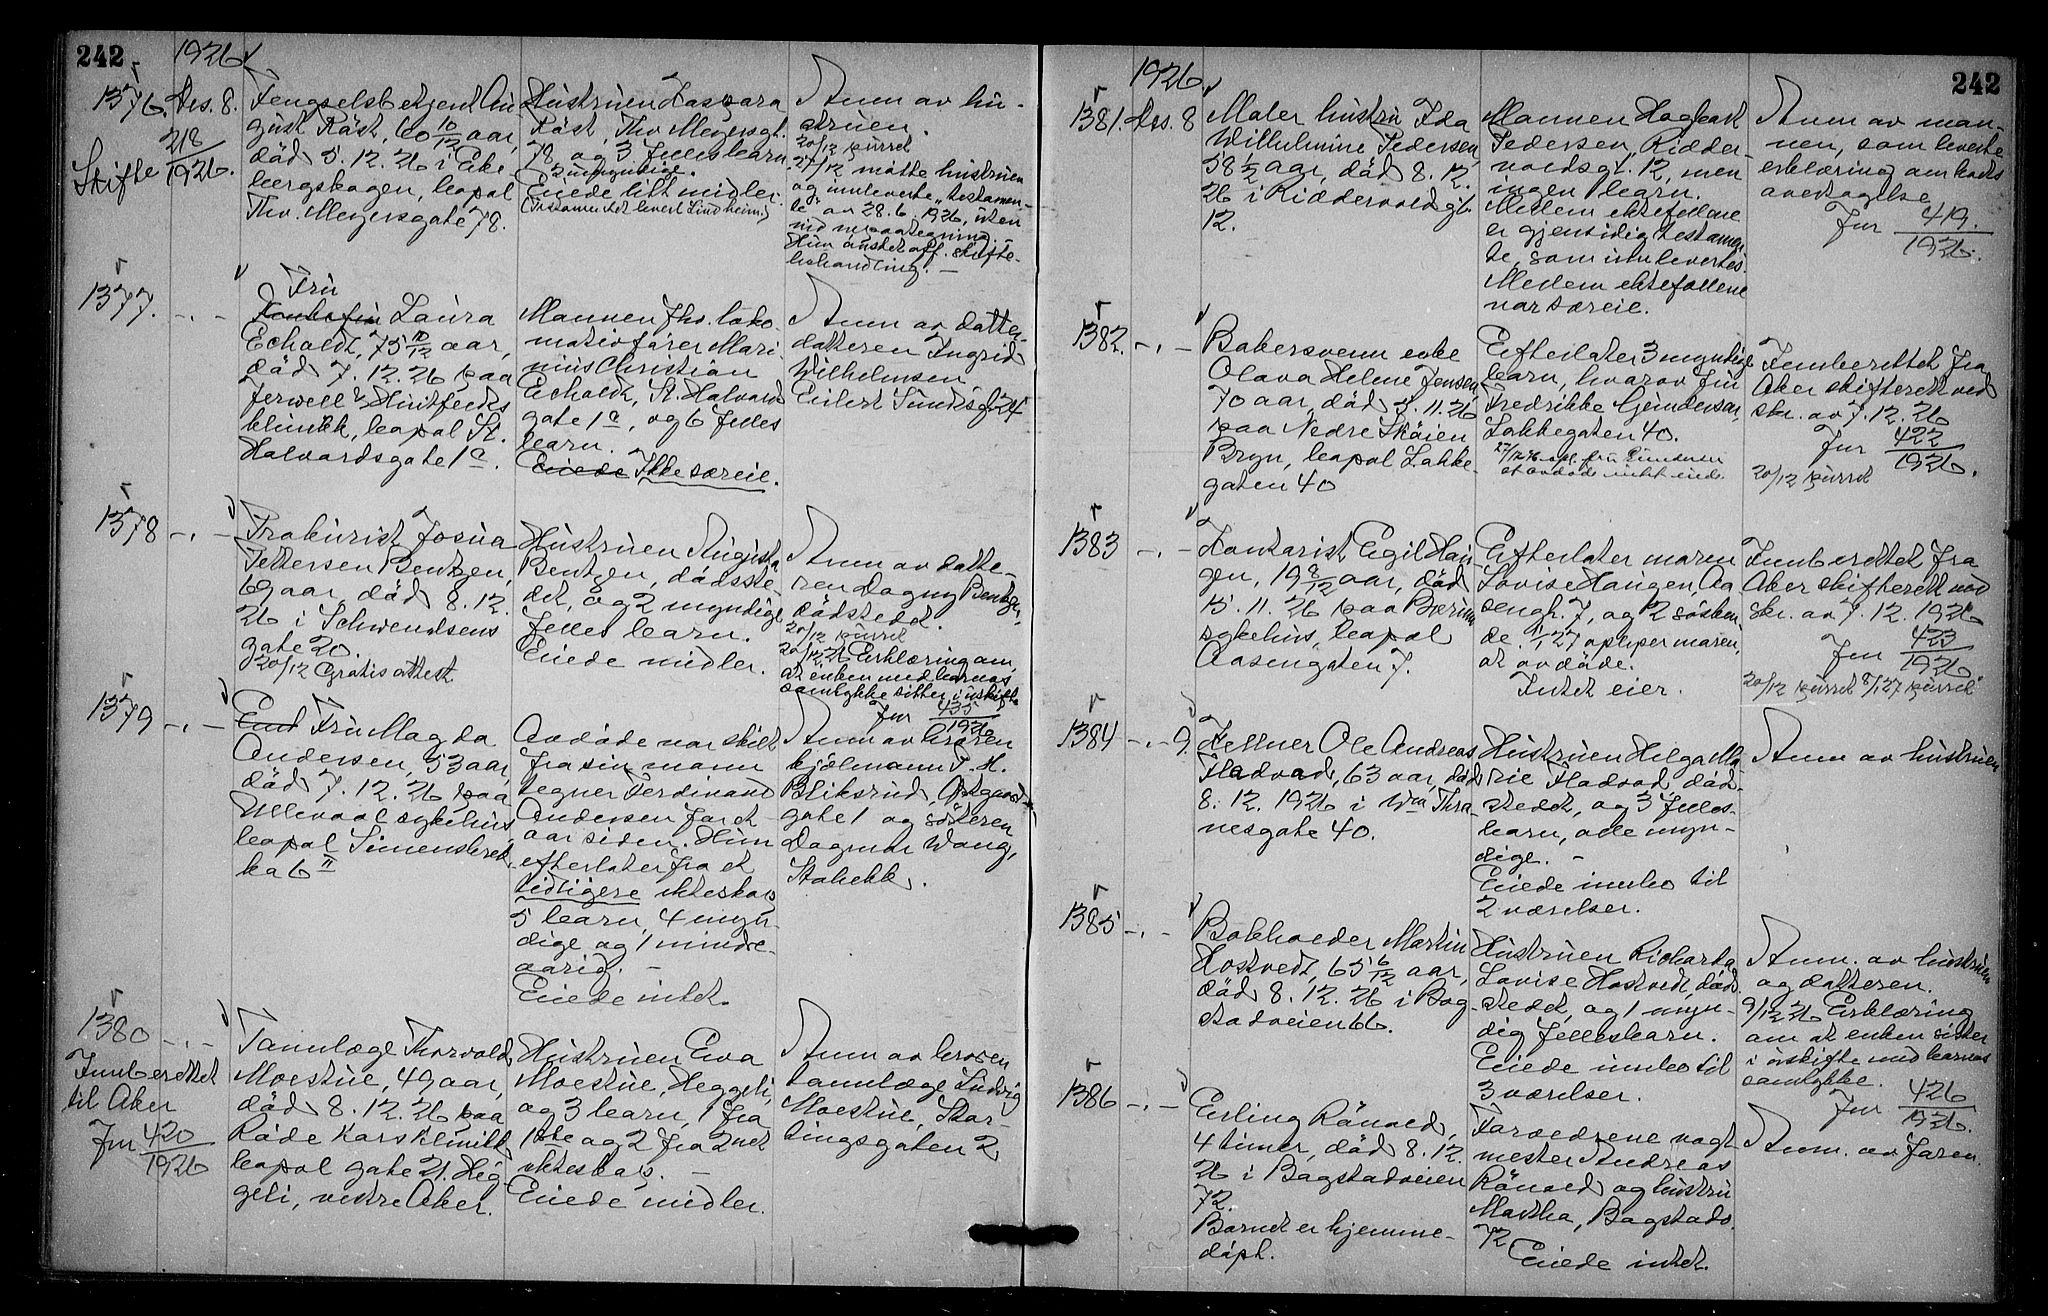 242
1926
1376. Des. 8.
218
1926.
Skifte
Fengselsbetjent Au-
gust Räst, 60 10/12 aar,
död 5.12.26 i Eke-
bergskogen, bopæl
Thv. Meyersgate 78.
Hustruen Kaspara
Räst, Thv Meyersgt.
78, og 3 fellesbarn,
3 umyndige.
Eiede litt midler.
(Testamentet levert Lindheim)
Anm av hu-
struen.
20/12 purret
27/12 møtte hustruen
og innleverte "testamen-
te" av 28.6.1926,
Hun ønsket off. skifte-
behandling. —
1377. -.-
Fru
Laura
Echoldt, 75 10/12 aar,
död 7.12.26 paa
Jerwell & Huitfeldts
klinikk, bopæl St.
Halvardsgate 1a.
Mannen fhv. loko-
motivfører Mari-
nius Christian
Echoldt, St. Halvards
gate 1a, og 6 felles
barn.
Eiede Ikke særeie.
Anm av datter-
datteren Ingrid
Wilhelmsen
Eilert Sundtsgt 24
1378 -.-
Prokurist Josua
Pettersen Bentzen,
69 aar, död 8.12.
26 i Schwendsens
gate 20.
20/12 Gratis attest.
Hustruen Augusta
Bentzen, dödsste-
det, og 2 myndige
felles barn.
Eiede midler.
Anm av datte-
ren Dagny Bentzen,
dödsstedet.
20/12 purret
20/12 26 Erklæring om,
at enken med barnas
samtykke sitter i uskifte
Jnr 435
1926
1379 -.-
Fru Magda
Andersen, 53 aar,
död 7.12.26 paa
Ullevaal sykehus
bopæl Simensbræk-
ka 6 II
Avdöde var skilt
fra sin mann
tegner Ferdinand
Andersen for et
aar siden. Hun
efterlater fra et
tidligere ekteskap
5 barn, 4 myn-
dige og 1 mindre-
aarig. —
Eiede intet.
Anm av broren
kjölmann T. H.
Bliksrud,
gate 1 og søsteren
Dagmar Wang,
Stabekk.
1380 -.-
Innberettet
til Aker
Jnr 420
1926
Tannlæge Thorvald
Moestue, 49 aar,
död 8.12.26 paa
Röde Kors Klinikk
bopæl gate 21. Heg-
geli, vestre Aker.
Hustruen Ewa
Moestue, Heggeli,
og 3 barn, 1 fra
1ste og 2 fra 2net
ekteskap. —
Eiede midler.
Anm av broren
tannlæge Ludvig
Moestue, Stor-
tingsgaten 2
1926
242
1381. Des. 8
Maler hustru Ida
Wilhelmine Pedersen,
58 1/2 aar, död 8.12.
26 i Riddervoldsgt.
12.
Mannen Hagbart
Pedersen, Ridder-
voldsgt. 12, men
ingen barn.
Mellem ektefellene
er gjensidig testamen-
te, som innlevertes.
Mellem ektefellene
var særeie.
Anm av man-
nen, som leverte
erklæring om boets
overtagelse
Jnr 419.
1926.
1382. -.-
Bakersvenn enke
Olava Helene Jensen,
70 aar, död 5.11.26
paa Nedre Sköien
Bryn, bopæl Lakke-
gaten 40
Efterlater 3 myndige
barn, hvorav fru
Fredrikke Gundersen,
Lakkegaten 40.
at avdöde intet eiede.
Innberettet fra
Aker skifterett ved
skr. av 7.12.26
Jnr 422
1926.
20/12 purret
1383 -.-
Kontorist Egil Hau-
gen, 19 8/12 aar, död
15.11.26 paa Bærum
sykehus, bopæl
Aasengaten 7.
Efterlater moren
Lovise Haugen, Aa-
sengt. 7, og 12 søsken
de. 9/1 27 opl. per moren,
at avdöde.
Intet eier.
Innberettet fra
Aker skifterett ved
skr. av 7.12.1926
Jnr 423
1926
20/12 purret 8/1 27 purret
1384 -.- 9.
Kellner Ole Andreas
Fladvad, 63 aar, död
8.12.1926 i Wm Thra-
nesgate 40.
Hustruen Helga Ma-
rie Fladvad, död-
stedet, og 3 felles-
barn, alle myn-
dige. —
Eiede innbo til
2 værelser.
Anm av hustruen
1385 -.-
Bokholder Martin
Hostvedt, 65 6/12 aar,
död 8.12.26 i Bog-
stadveien 66.
Hustruen Richarda
Lovise Hostvedt, död-
stedet, og 1 myn-
dig fellesbarn.
Eiede innbo til
3 værelser.
Anm. av hustruen
og datteren.
9/12 26 Erklæring
om at enken sitter
i uskifte med barnas
samtykke.
Jnr 426
1926.
1386 -.-
Erling Rönold,
4 timer, död 8.12.
26 i Bogstadveien
72.
Barnet er hjemme-
döpt.
Foreldrene vagt-
mester Andreas
Rönold og hustru
Martha, Bogstadv.
72
Eiede intet.
Anm. av faren.